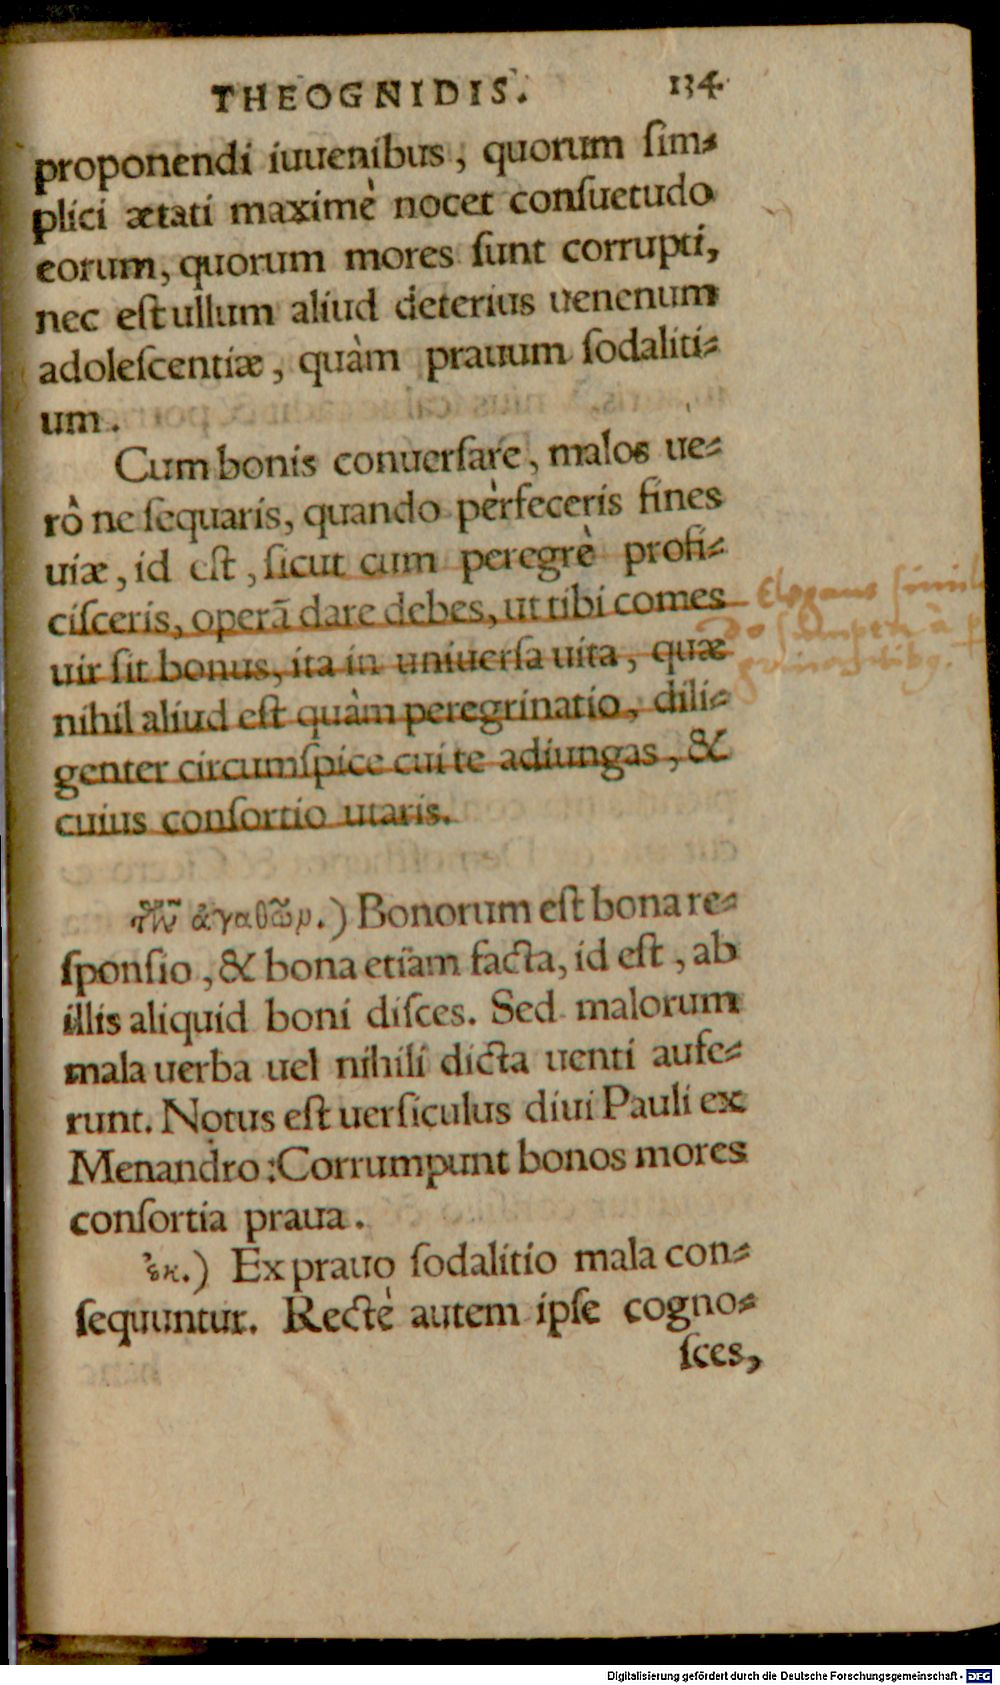 THEOGNIDIS. 134.
proponendi iuuenibus, quorum ſim⸗
plici ætati maximè nocet conſuetudo
eorum, quorum mores ſunt corrupti,
nec eſt ullum aliud deterius uenenum
adoleſcentiæ, quàm prauum ſodaliti⸗
um.
Cum bonis conuerſare, malos ue⸗
rò ne ſequaris, quando perfeceris fines
uiæ, id eſt, ſicut cum peregrè profi⸗
ciſceris, operā dare debes, ut tibi comes
uir ſit bonus, ita in uniuerſa uita, quæ
nihil aliud eſt quàm peregrinatio, dili⸗
genter circumſpice cui te adiungas, &
cuius conſortio utaris.
Elegans simili
do sumpta à p
τῶν ἀγαθῶν.) Bonorum eſt bona re⸗
ſponſio, & bona etiam facta, id eſt, ab
illis aliquid boni diſces. Sed malorum
mala uerba uel nihili dicta uenti aufe⸗
runt. Notus eſt uerſiculus diui Pauli ex
Menandro: Corrumpunt bonos mores
conſortia praua.
ἐκ.) Ex prauo ſodalitio mala con⸗
ſequuntur. Rectè autem ipſe cogno⸗
ſces,
Digitalisierung gefördert durch die Deutsche Forschungsgemeinschaft - DFG